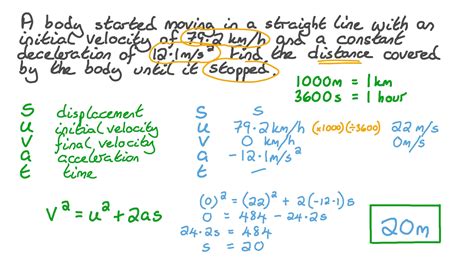 A body started moving in a straight line with an
initial velocity of 79.2 km/h and a constant
deceleration of 12.1m/s². Find the distance covered
by the body until it stopped.
1000m = 1km
3600s = 1 hour
S displacement
u initial velocity
v final velocity
a acceleration
t time
S S
u 79.2 km/h (x1000)(÷3600) 22 m/s
v 0 km/h 0m/s
a -12.1m/s²
t —
v² = u² + 2as
(0)² = (22)² + 2(-12.1)s
0 = 484 - 24.2s
24.2s = 484
s = 20
20m